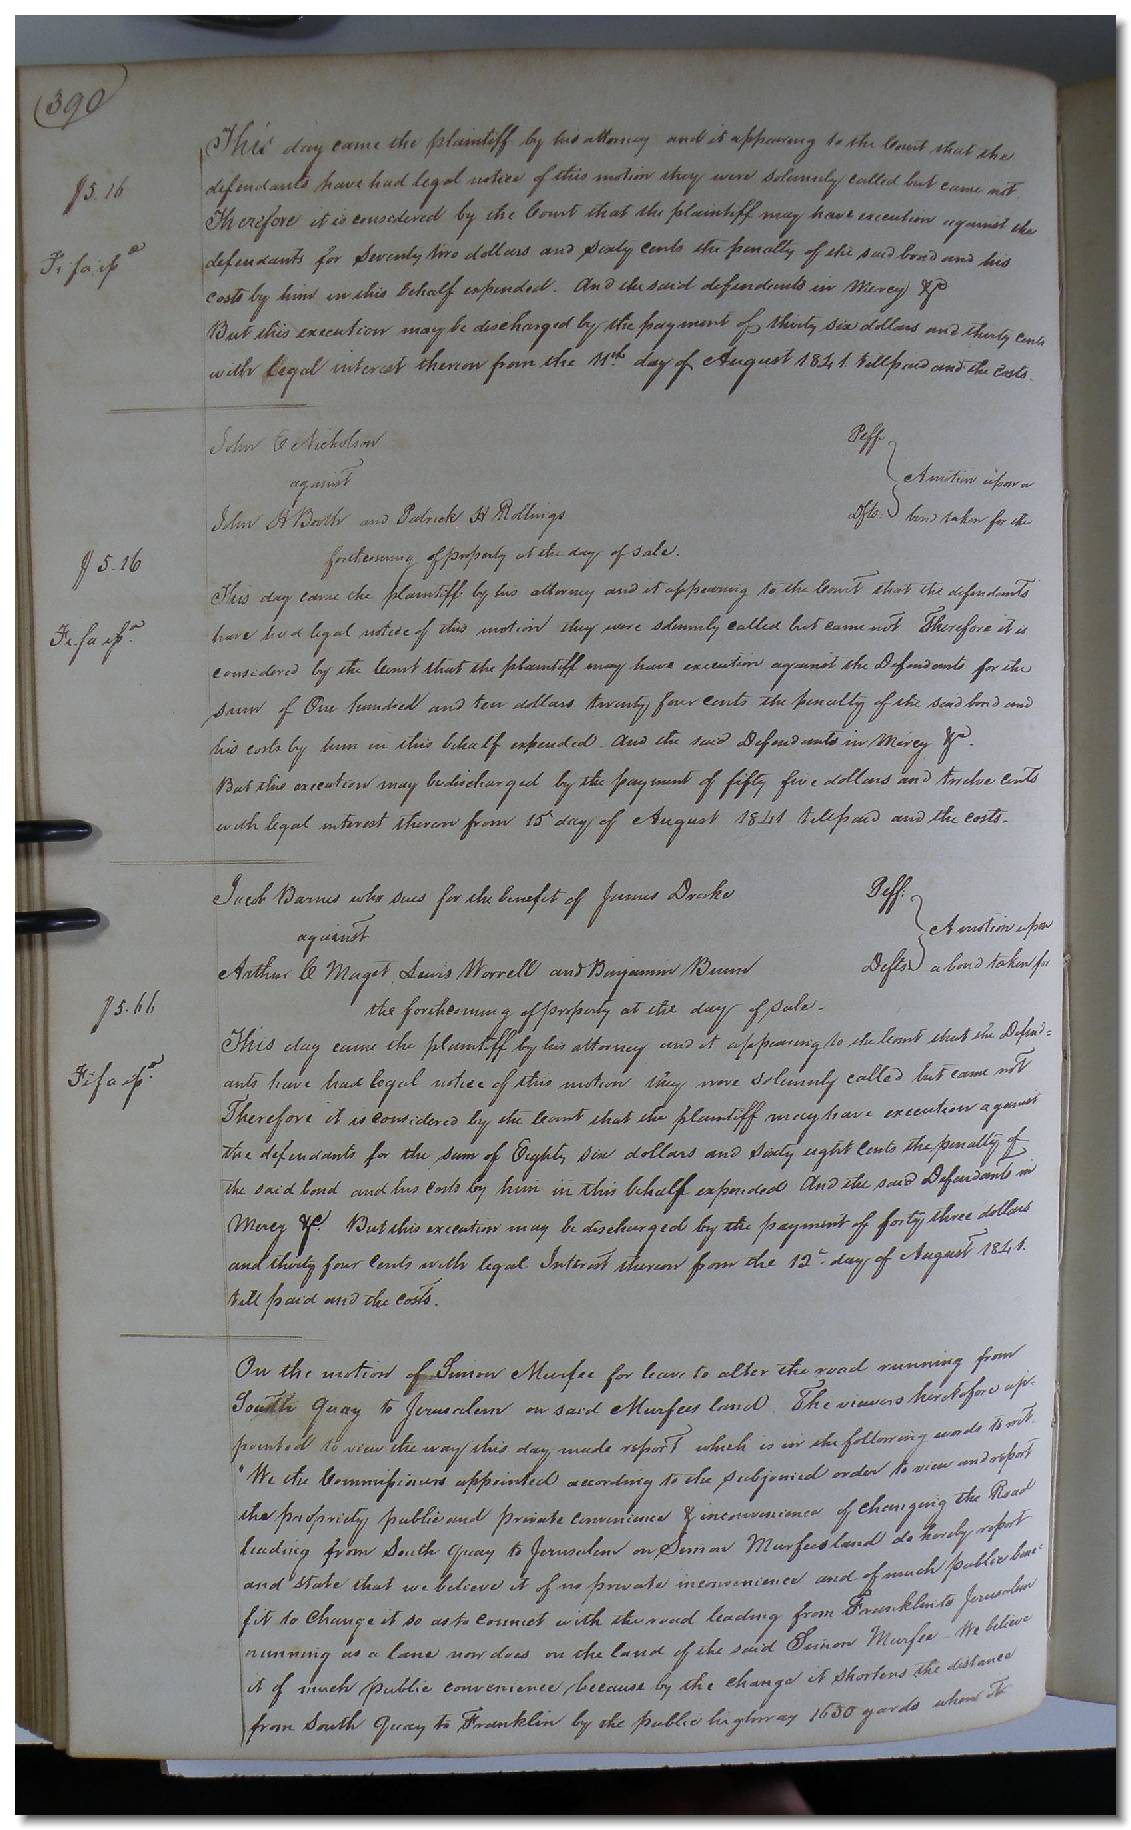 390
This day came the plaintiff by his attorney and it appearing to the Court that the
$5.16
defendants have had legal notice of this motion they were solemnly called but came not
Therefore it is considered by the Court that the plaintiff may have execution against the
Fi fa
defendants for Seventy two dollars and Sixty cents the penalty of the said bond and his
costs by him in this behalf expended. And the said defendants in Mercy &c
But this execution may be discharged by the payment of thirty six dollars and thirty cents
with legal interest thereon from the 11th day of August 1841. till paid and the costs.
John C Nicholson Plff.
against A motion upon a
John H Booth and Patrick H Rollings Dfts. bond taken for the
forthcoming of property at the day of sale.
$5.16
This day came the plaintiff by his attorney and it appearing to the Court that the defendants
Fi fa
have had legal notice of this motion they were solemnly called but came not Therefore it is
considered by the Court that the plaintiff may have execution against the Defendants for the
sum of One hundred and ten dollars twenty four cents the penalty of the said bond and
his costs by him in this behalf expended. And the said Defendants in Mercy &c.
But this execution may be discharged by the payment of fifty five dollars and twelve cents
with legal interest thereon from 15 day of August 1841 till paid and the costs.
Jacob Barnes who sues for the benefit of James Drake Plff.
against A motion upon
Arthur C Maget, Lewis Worrell and Benjamin Bunn Defts. a bond taken for
the forthcoming of property at the day of sale.
$5.66
This day came the plaintiff by his attorney and it appearing to the Court that the Defend-
Fi fa
ants have had legal notice of this motion they were solemnly called but came not
Therefore it is considered by the Court that the plaintiff may have execution against
the defendants for the sum of Eighty six dollars and sixty eight cents the penalty of
the said bond and his costs by him in this behalf expended And the said Defendants in
Mercy &c. But this execution may be discharged by the payment of forty three dollars
and thirty four cents with legal Interest thereon from the 12th day of August 1841.
till paid and the costs.
On the motion of Simon Murfee for leave to alter the road running from
South Quay to Jerusalem on said Murfees land. The viewers heretofore ap-
pointed to view the way this day made report which is in the following words to wit.
"We the Commissioners appointed according to the subjoined order to view and report
the propriety public and private convenience & inconvenience of changing the Road
leading from South Quay to Jerusalem on Simon Murfees land do hereby report
and state that we believe it of no private inconvenience and of much public bene-
fit to change it so as to connect with the road leading from Franklin to Jerusalem
running as a lane now does on the land of the said Simon Murfee - We believe
it of much public convenience, because by the change it shortens the distance
from South Quay to Franklin by the public highway 1650 yards when it